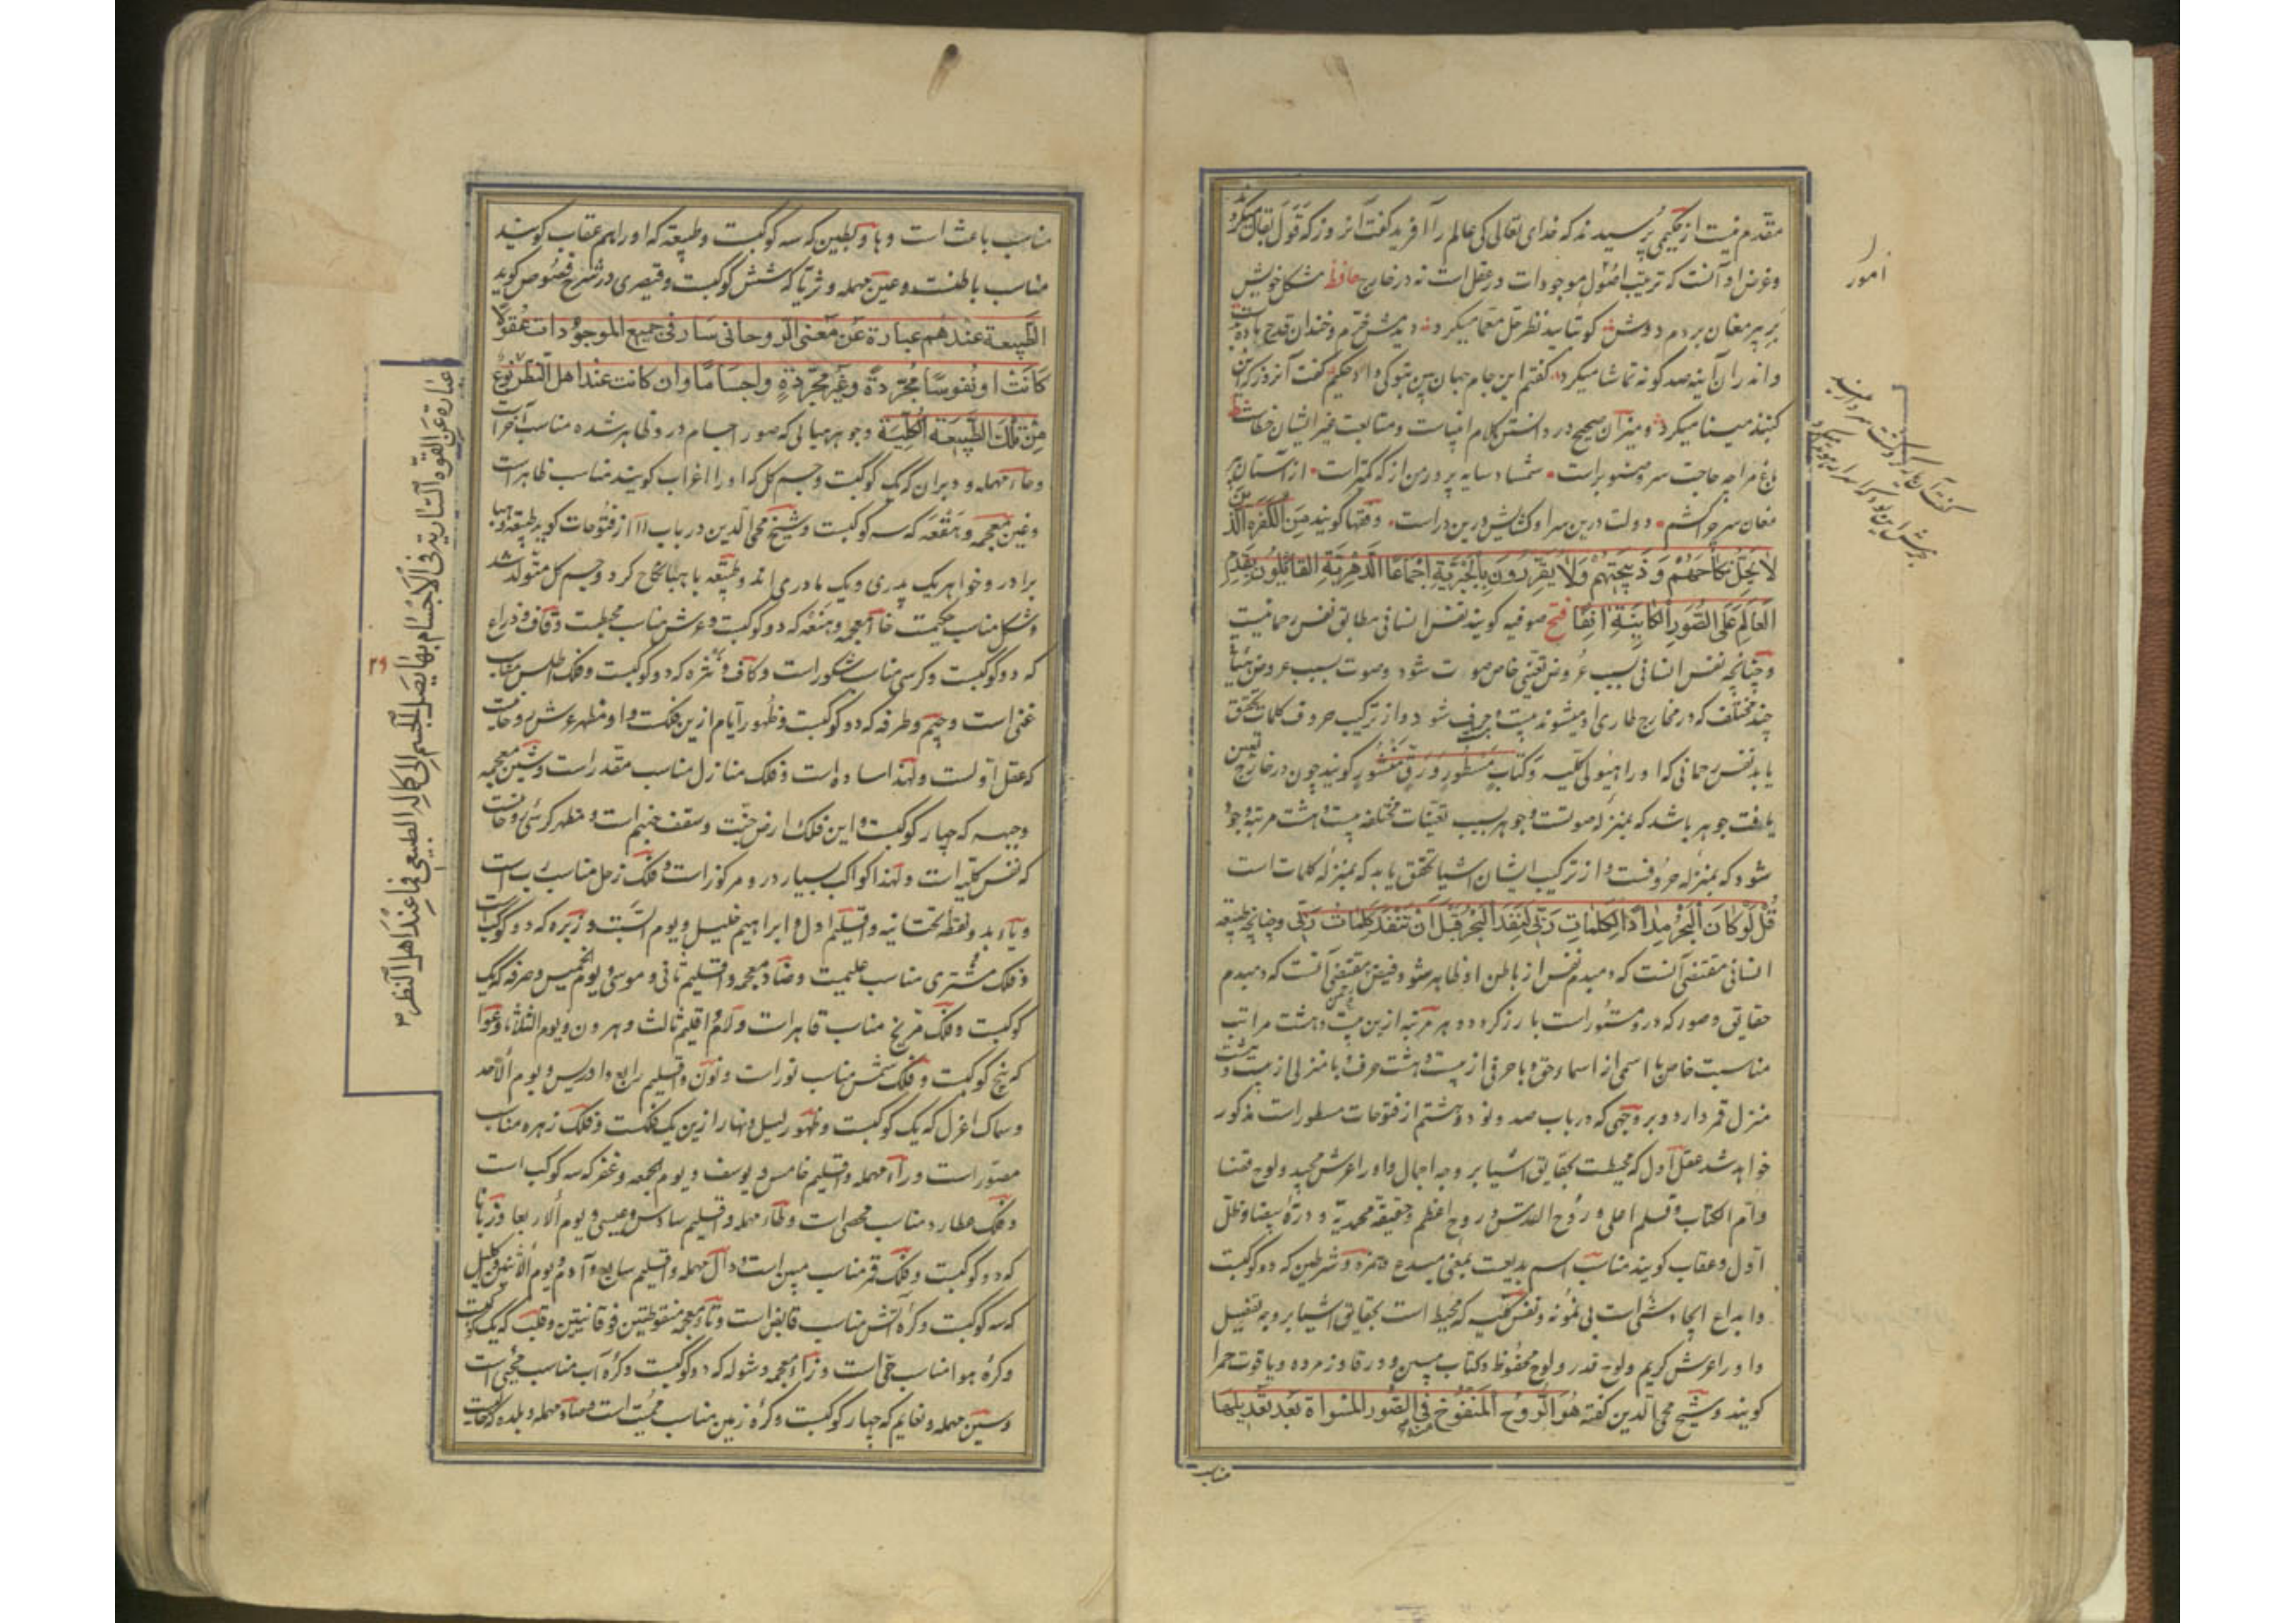 مقدم نیست از حکیمی پرسیدند که خدای تعالی کی عالم را آفرید گفت آنروز که قول بقا میکرد
وغرض او آنست که ترتیب اصول موجودات در عقل است نه در خارج حافظ مشکل خویش
بر پیر مغان بردم دوش کو بتایید نظر حل معما میکرد دیدمش خرم و خندان قدح باده بدست
واندران آینه صد گونه تماشا میکرد گفتم این جام جهان بین بتو کی داد حکیم گفت آنروز که این
کنبد مینا میکرد ومیزان صحیح در دانستن کلام انبیاست ومتابعت غیر ایشان خطاست
باغ مرا چه حاجت سرو صنوبر است شمشاد سایه پرور من از که کمتر است از آستان پیر
مغان سر چرا کشم دولت درین سرا وکشایش درین در است وفقها کویند من الکفرة الذین
لا یحل نکاحهم وذبیحتهم ولا یقررون بالجزیة اجماعا الدهریة القائلون بقدم
العالم علی الصور الکاینة آنفا فتح صوفیه کویند نفس انسانی مطابق نفس رحمانیست
وچنانچه نفس انسانی بسبب عروض تعینی خاص صورت شود وصوت بسبب عروض هیأت
چند مختلف که در مخارج طاری او میشوند بیست و حرف شود واز ترکیب حروف کلمات تحقق
یابد نفس رحمانی که اورا هیولی کلیه وکتاب مسطور ورق منشور کویند چون در خارج تعین
یافت جوهر باشد که بمنزله صوتست وجوهر بسبب تعینات مختلفه بیست وهشت مرتبه وجود
شود که بمنزله حروفست واز ترکیب ایشان اشیا تحقق یابد که بمنزله کلمات است
قل لو کان البحر مدادا لکلمات ربی لنفد البحر قبل ان تنفد کلمات ربی وچنانچه طبیعة
انسانی مقتضی آنست که دمبدم نفس از باطن او ظاهر شود وفیض مقتضی آنست که دمبدم
حقایق وصور که درو مستور است بارز کردد وهر مرتبه ازین بیست وهشت مراتب
مناسبت خاص با اسمی از اسماء حق وبا حرفی از بیست وهشت حرف با منزلی از بیست وهشت
منزل قمر دارد وبر وجهی که در باب صد ونود وهشتم از فتوحات مسطور است مذکور
خواهد شد عقل اول که محیطست بحقایق اشیا بر وجه اجمال واورا عرش مجید ولوح قضا
وام الکتاب وقلم اعلی وروح القدس وروح اعظم وحقیقة محمدیة ودرة بیضا وظل
اول وعقاب کویند مناسب اسم بدیعست بمعنی مبدع وهمزه وشرطین که دو کوکبست
وابداع ایجاد شی است بی نمونه ونفس کلیه که محیط است بحقایق اشیا بر وجه تفصیل
واورا عرش کریم ولوح قدر ولوح محفوظ وکتاب مبین وورقا وزمرده ویاقوت حمرا
کویند وشیخ محی الدین کفته هو الروح المنفوخ فی الصور المسواة بعد تعدیلها
مناسب
امور
مناسب باعث است وبا وبطین که سه کوکبست وطبیعة که اورا هم عقاب کویند
مناسب باطنست وعین مهمله وثریا که شش کوکبست وقیصری در شرح فصوص کوید
الطبیعة عندهم عبارة عن معنی الروحانی سار فی جمیع الموجودات عقولا
کانت او نفوسا مجردة وغیر مجردة واجساما وان کانت عند اهل النظر نوع
من تلک الطبیعة الکلیة وجوهر هبائی که صور اجسام درو ظاهر شده مناسب آخر است
وحاء مهمله ودبران که یک کوکبست وجسم کل که اورا غراب کویند مناسب ظاهر است
وغین معجمه وهقعه که سه کوکبست وشیخ محی الدین در باب ۱۱ از فتوحات کوید طبیعة وهبا
برادر وخواهر یک پدری ویک مادری اند وطبیعة با هبا نکاح کرد وجسم کل متولد شد
وشکل مناسب حکیمست خاء معجمه وهنعه که دو کوکبست وعرش مناسب محیطست وقاف وذراع
که دو کوکبست وکرسی مناسب شکور است وکاف ونثره که دو کوکبست وفلک اطلس مناسب
غنی است وجیم وطرفه که دو کوکبست وظهور ایام ازین فلکست واو مظهر عرش روحانیست
که عقل اولست ولهذا ساده است وفلک منازل مناسب مقدر است وشین معجمه
وجبهه که چهار کوکبست واین فلک ارض جنت وسقف جهنم است ومظهر کرسی روحانیست
که نفس کلیه است ولهذا کواکب بسیار درو مرکوز است وفلک زحل مناسب رب است
ویاء بدو نقطه تحتانیه واقلیم اول وابراهیم خلیل ویوم السبت وزبره که دو کوکبست
وفلک مشتری مناسب علیمست وضاد معجمه واقلیم ثانی وموسی ویوم الخمیس وصرفه که یک
کوکبست وفلک مریخ مناسب قاهر است ولام واقلیم ثالث وهرون ویوم الثلثاء وعوا
که پنج کوکبست وفلک شمس مناسب نور است ونون واقلیم رابع وادریس ویوم الاحد
وسماک اعزل که یک کوکبست وظهور لیل ونهار ازین یک فلکست وفلک زهره مناسب
مصور است وراء مهمله واقلیم خامس ویوسف ویوم الجمعه وغفر که سه کوکب است
وفلک عطارد مناسب محصی است وطاء مهمله واقلیم سادس وعیسی ویوم الاربعا وزبانا
که دو کوکبست وفلک قمر مناسب مبین است ودال مهمله واقلیم سابع وآدم ویوم الاثنین واکلیل
که سه کوکبست وکره آتش مناسب قابض است وتاء معجمه منقوطتین فوقانیتین وقلب که یک کوکبست
وکره هوا مناسب حی است وزاء معجمه وشوله که دو کوکبست وکره آب مناسب محیی است
وسین مهمله ونعایم که چهار کوکبست وکره زمین مناسب ممیت است وصاد مهمله وبلده که
عبارة عن القوة الساریة فی الاجسام بها یصل الجسم الی کماله الطبیعی فما عند اهل النظر
۲۹